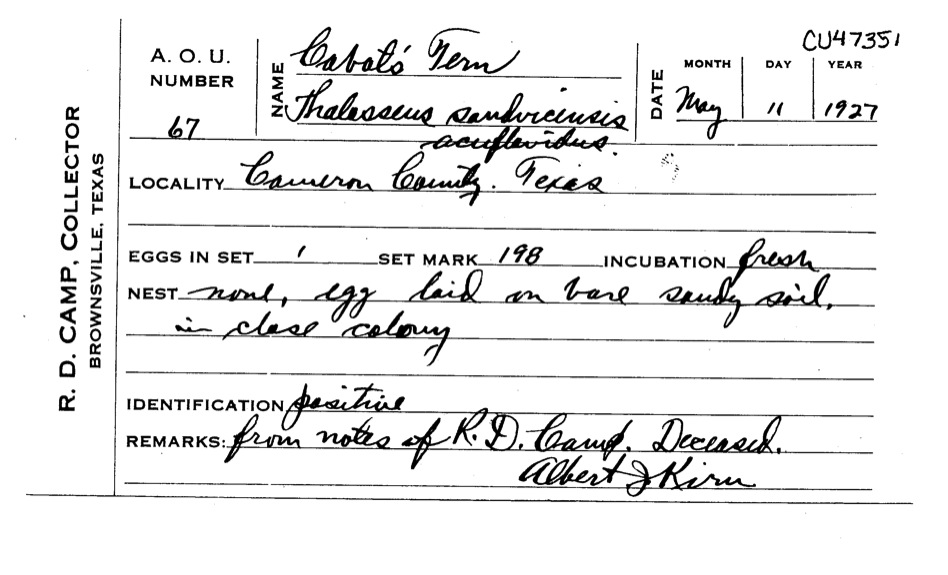 CU47351
R. D. CAMP, COLLECTOR
BROWNSVILLE, TEXAS
A. O. U. NUMBER 67
NAME Cabot's Tern
Thalasseus sandvicensis
acuflavidus.
DATE MONTH May DAY 11 YEAR 1927
LOCALITY Cameron County. Texas
EGGS IN SET 1 SET MARK 198 INCUBATION fresh
NEST none, egg laid on bare sandy soil.
in close colony
IDENTIFICATION positive
REMARKS: from notes of R. D. Camp. Deceased.
Albert J Kirn